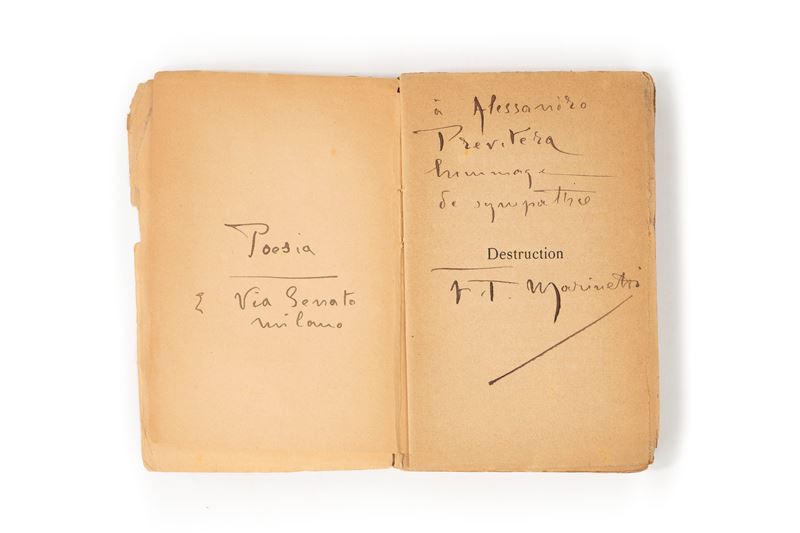 Poesia
2 Via Senato
milano
à Alessandro
Previtera
hommage
de sympathie
Destruction
F. T. Marinetti